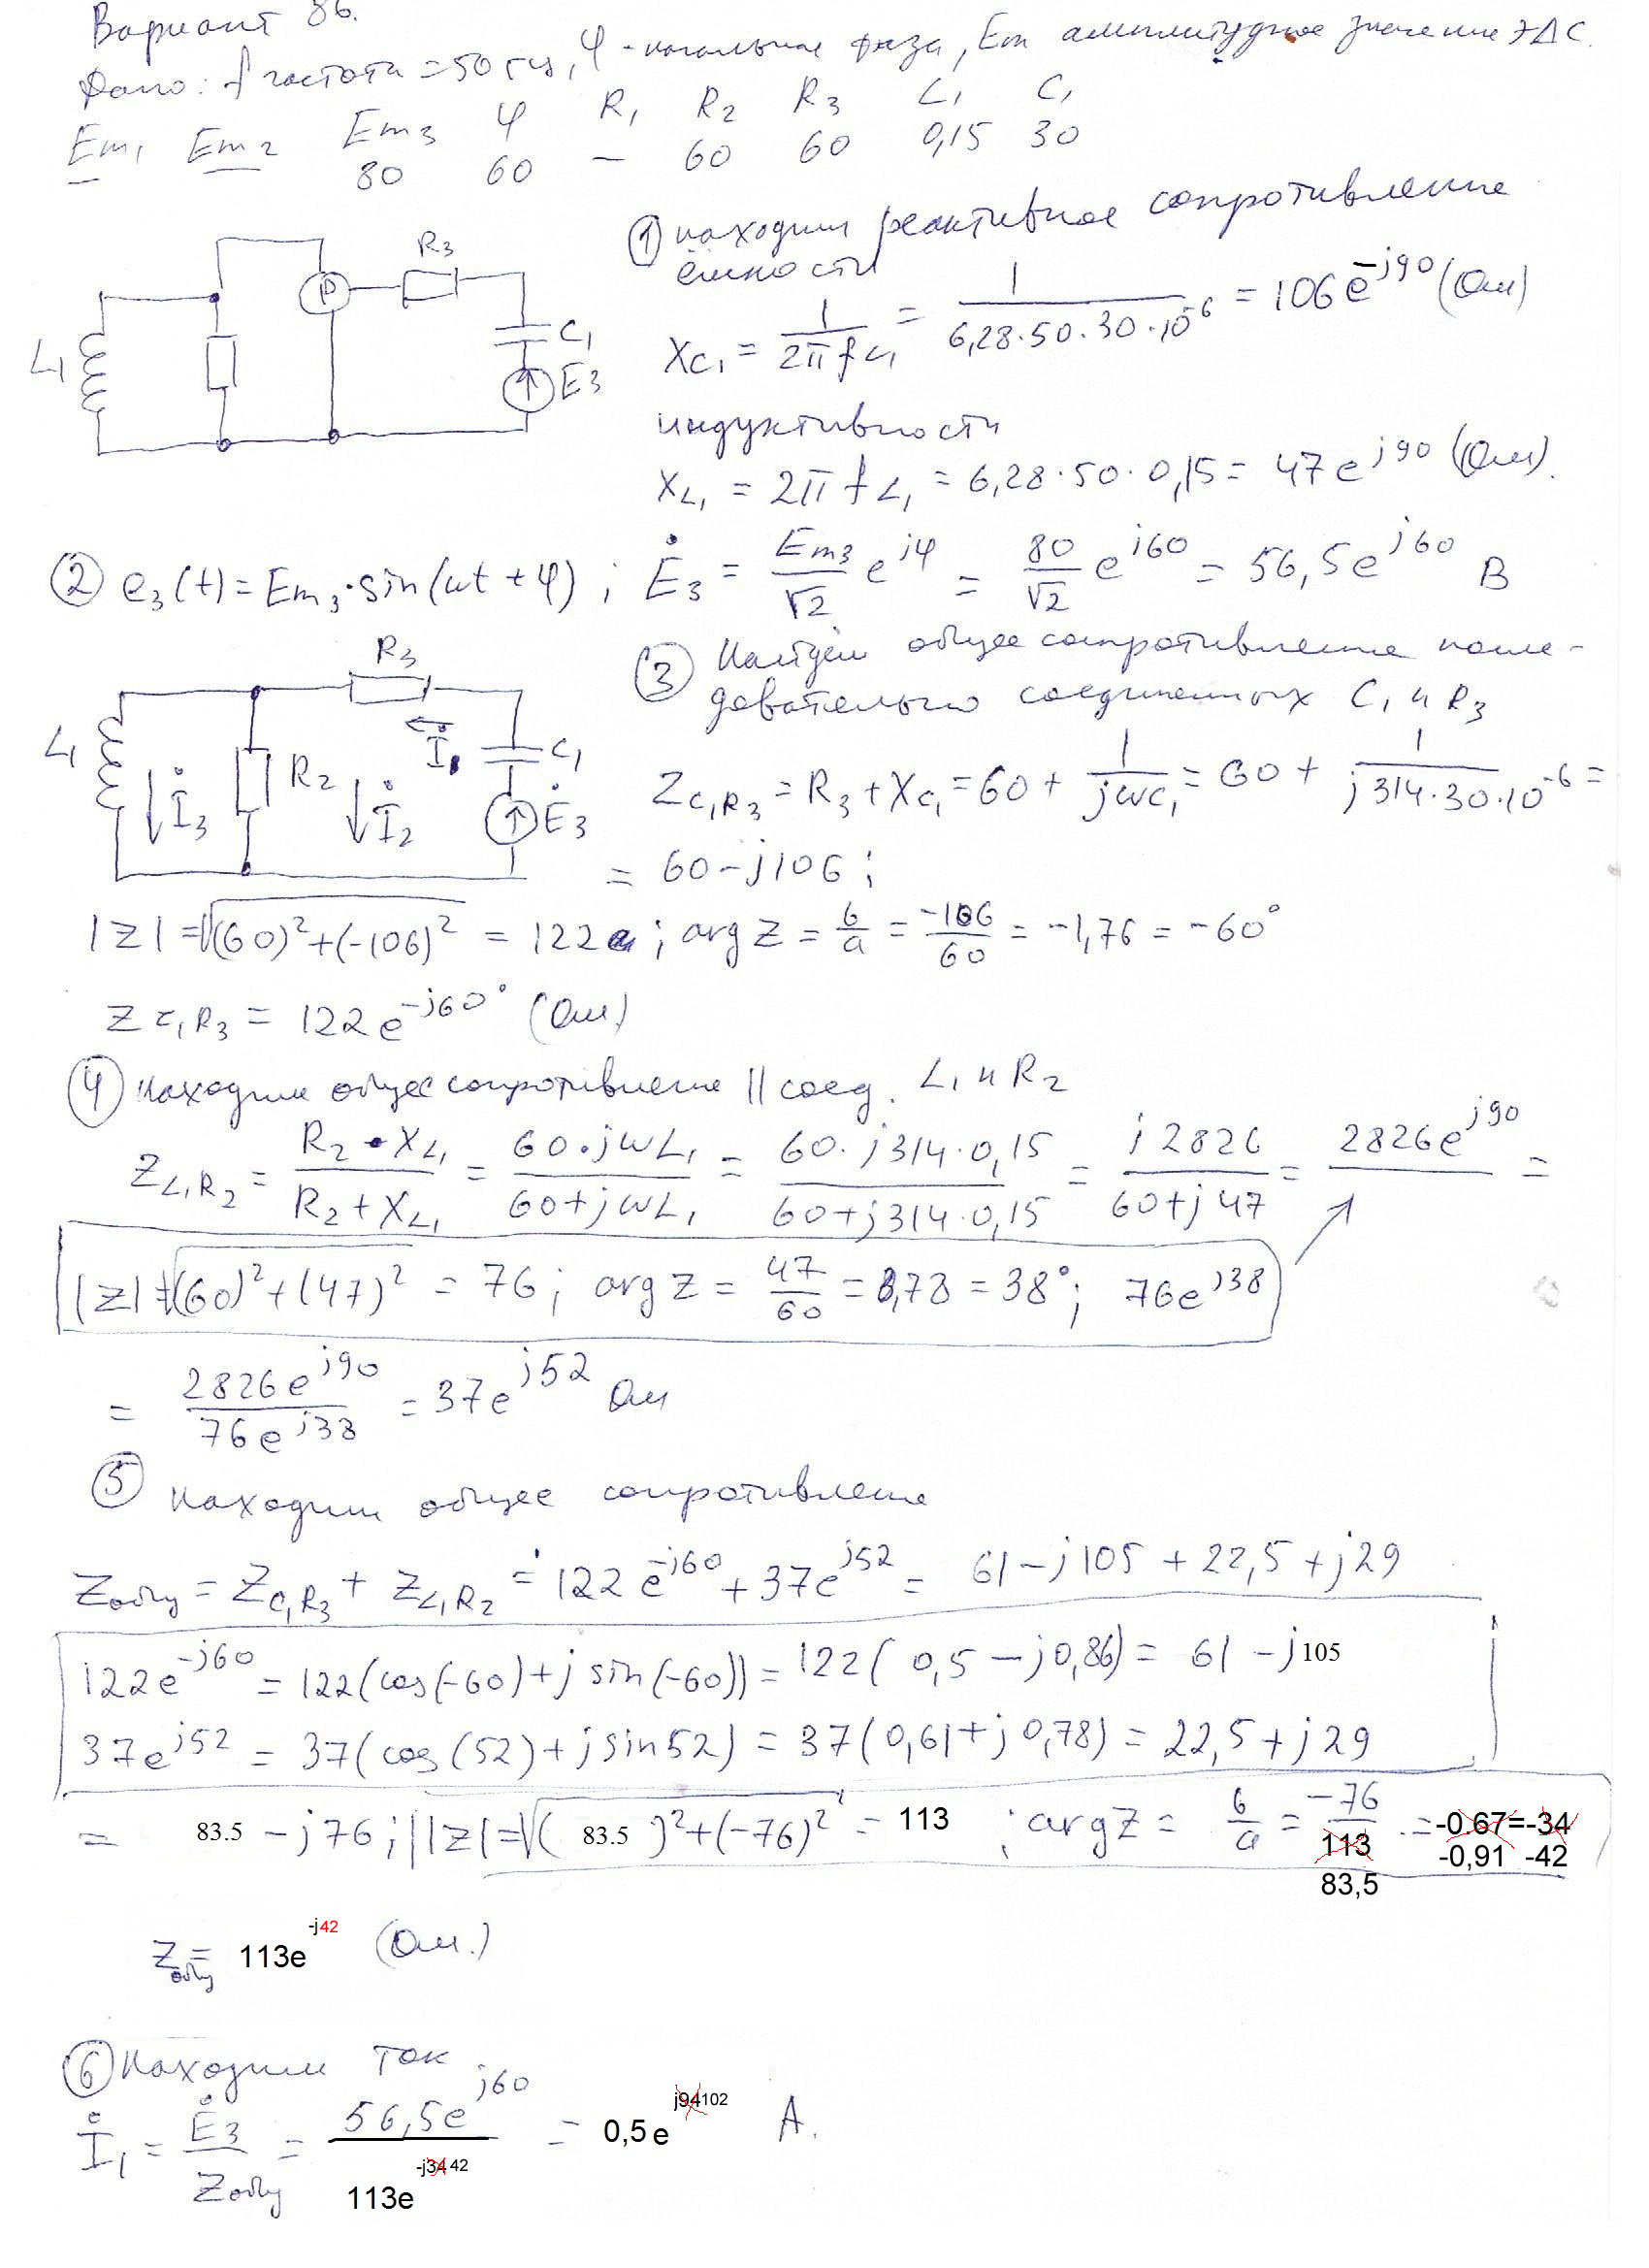 Вариант 86.
Дано: f частота = 50 гц, φ - начальная фаза, Em амплитудное значение ЭДС.
Em1 Em2 Em3 φ R1 R2 R3 L1 C1
— — 80 60 — 60 60 0,15 30
① находим реактивное сопротивление
ёмкости
XC1 = 1/(2πfC1) = 1/(6,28·50·30·10^-6) = 106e^-j90 (Ом)
R3
P
L1
C1
E3
индуктивности
XL1 = 2πfL1 = 6,28·50·0,15 = 47e^j90 (Ом).
② e3(t) = Em3·sin(ωt + φ) ; Ė3 = Em3/√2 e^jφ = 80/√2 e^j60 = 56,5e^j60 В
③ Найдём общее сопротивление после-
довательно соединенных C1 и R3
R3
L1
R2
İ1
C1
İ3
İ2
Ė3
ZC1R3 = R3 + XC1 = 60 + 1/(jωC1) = 60 + 1/(j314·30·10^-6) =
= 60 - j106 ;
|Z| = √((60)²+(-106)²) = 122 ; arg Z = b/a = -106/60 = -1,76 = -60°
ZC1R3 = 122e^-j60° (Ом)
④ Находим общее сопротивление || соед. L1 и R2
ZL1R2 = R2·XL1/(R2+XL1) = 60·jωL1/(60+jωL1) = 60·j314·0,15/(60+j314·0,15) = j2826/(60+j47) = 2826e^j90/ =
|Z| = √((60)²+(47)²) = 76 ; arg Z = 47/60 = 0,78 = 38° ; 76e^j38
= 2826e^j90/76e^j38 = 37e^j52 Ом
⑤ Находим общее сопротивление
Zобщ = ZC1R3 + ZL1R2 = 122e^-j60 + 37e^j52 = 61 - j105 + 22,5 + j29
122e^-j60 = 122(cos(-60)+j sin(-60)) = 122(0,5 - j0,86) = 61 - j105
37e^j52 = 37(cos(52)+j sin52) = 37(0,61+j0,78) = 22,5 + j29
= 83.5 - j76 ; |Z| = √((83.5)²+(-76)²) = 113 ; arg Z = b/a = -76/113 = -0.67=-34
83,5 -0,91 -42
Zобщ = 113e^-j42 (Ом.)
⑥ Находим ток
İ1 = Ė3/Zобщ = 56,5e^j60/113e^-j34 42 = 0,5e^j94102 А.